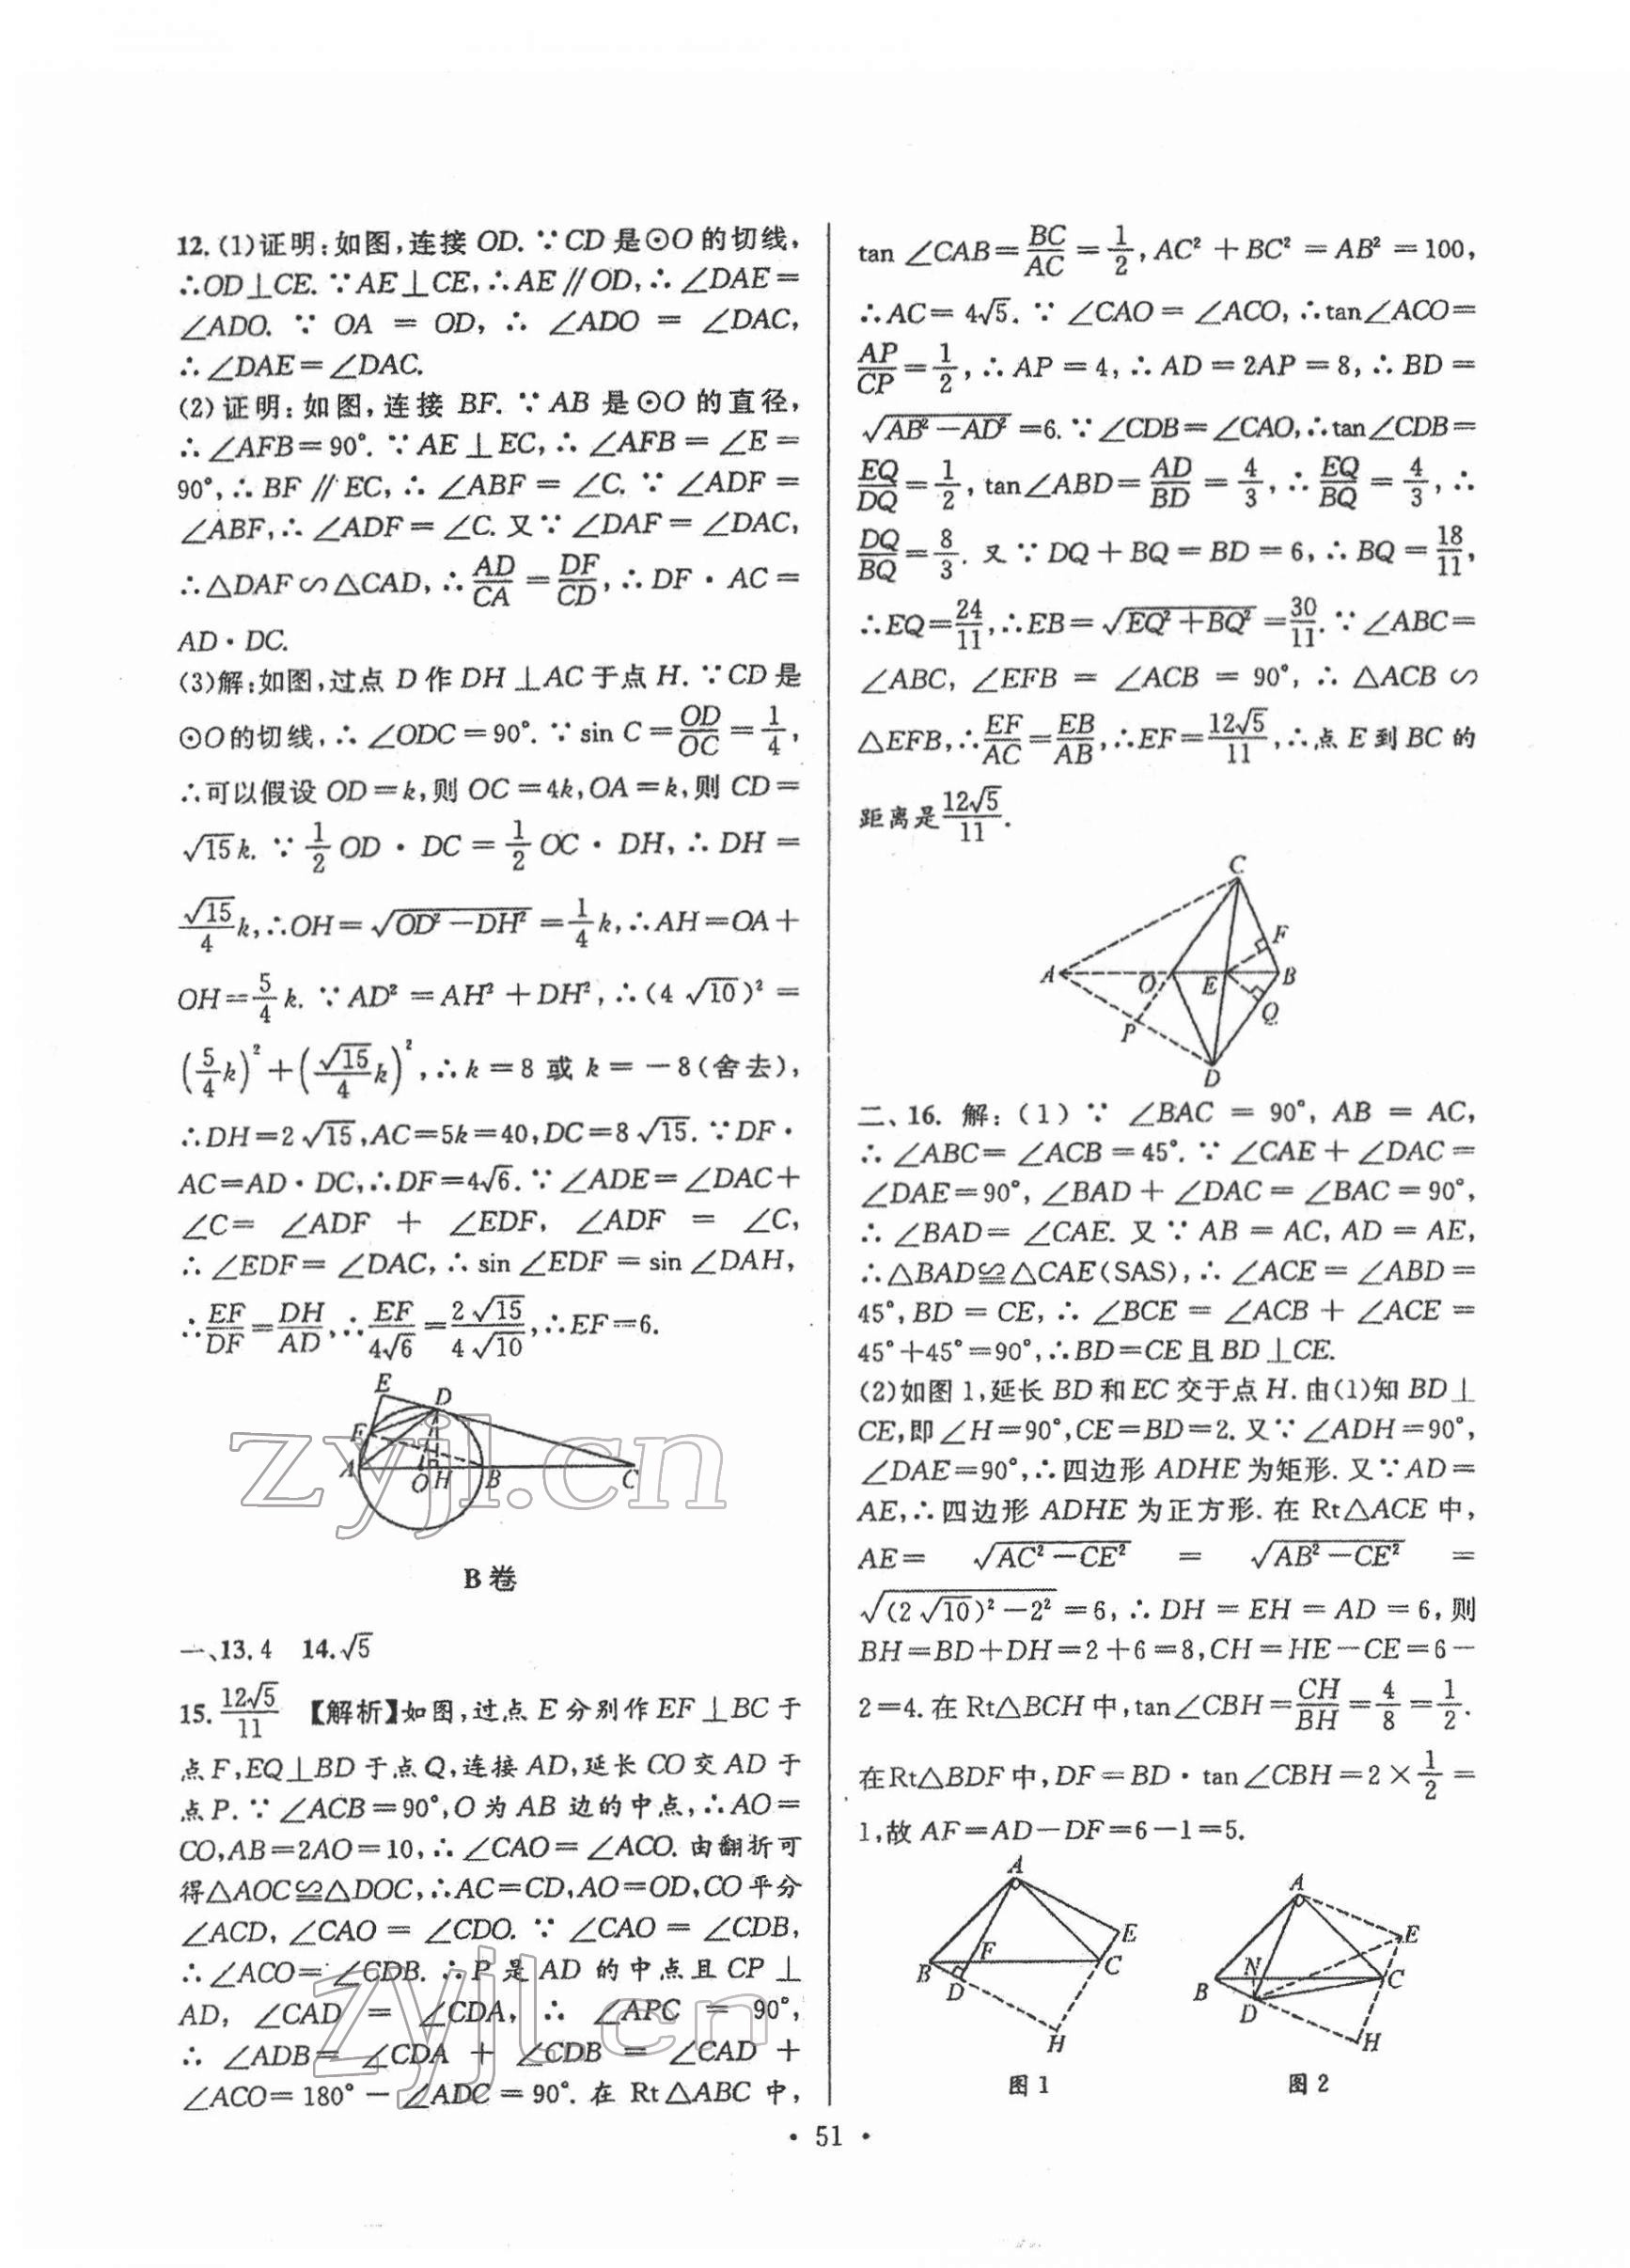 12. (1)证明:如图,连接 OD. ∵CD 是⊙O 的切线,
∴OD⊥CE. ∵AE⊥CE,∴AE∥OD,∴∠DAE=
∠ADO. ∵ OA = OD, ∴ ∠ADO = ∠DAC,
∴∠DAE=∠DAC.
(2)证明:如图,连接 BF. ∵AB 是⊙O 的直径,
∴∠AFB=90°. ∵AE⊥EC,∴∠AFB=∠E=
90°,∴BF∥EC,∴∠ABF=∠C. ∵∠ADF=
∠ABF,∴∠ADF=∠C. 又∵∠DAF=∠DAC,
∴△DAF∽△CAD,∴AD/CA=DF/CD,∴DF·AC=
AD·DC.
(3)解:如图,过点 D 作 DH⊥AC 于点 H. ∵CD 是
⊙O的切线,∴∠ODC=90°. ∵sin C=OD/OC=1/4,
∴可以假设 OD=k,则 OC=4k,OA=k,则 CD=
√15k. ∵1/2OD·DC=1/2OC·DH,∴DH=
√15/4k,∴OH=√(OD²-DH²)=1/4k,∴AH=OA+
OH=5/4k. ∵AD²=AH²+DH²,∴(4√10)²=
(5/4k)²+(√15/4k)²,∴k=8 或 k=-8(舍去),
∴DH=2√15,AC=5k=40,DC=8√15. ∵DF·
AC=AD·DC,∴DF=4√6. ∵∠ADE=∠DAC+
∠C= ∠ADF + ∠EDF, ∠ADF = ∠C,
∴∠EDF=∠DAC,∴sin∠EDF=sin∠DAH,
∴EF/DF=DH/AD,∴EF/4√6=2√15/4√10,∴EF=6.
E
D
F
A
O
H
B
C
zyjl.cn
B 卷
一、13. 4 14. √5
15. 12√5/11 【解析】如图,过点 E 分别作 EF⊥BC 于
点 F,EQ⊥BD 于点 Q,连接 AD,延长 CO 交 AD 于
点 P. ∵∠ACB=90°,O 为 AB 边的中点,∴AO=
CO,AB=2AO=10,∴∠CAO=∠ACO. 由翻折可
得△AOC≌△DOC,∴AC=CD,AO=OD,CO 平分
∠ACD,∠CAO=∠CDO. ∵∠CAO=∠CDB,
∴∠ACO=∠CDB. ∴P 是 AD 的中点且 CP⊥
AD, ∠CAD = ∠CDA, ∴ ∠APC = 90°,
∴ ∠ADB= ∠CDA + ∠CDB = ∠CAD +
∠ACO=180°-∠ADC=90°. 在 Rt△ABC 中,
zyjl.cn
tan∠CAB=BC/AC=1/2,AC²+BC²=AB²=100,
∴AC=4√5. ∵∠CAO=∠ACO,∴tan∠ACO=
AP/CP=1/2,∴AP=4,∴AD=2AP=8,∴BD=
√(AB²-AD²)=6. ∵∠CDB=∠CAO,∴tan∠CDB=
EQ/DQ=1/2,tan∠ABD=AD/BD=4/3,∴EQ/BQ=4/3,∴
DQ/BQ=8/3. 又∵DQ+BQ=BD=6,∴BQ=18/11,
∴EQ=24/11,∴EB=√(EQ²+BQ²)=30/11. ∵∠ABC=
∠ABC, ∠EFB = ∠ACB = 90°, ∴ △ACB∽
△EFB,∴EF/AC=EB/AB,∴EF=12√5/11,∴点 E 到 BC 的
距离是12√5/11.
C
F
A
O
E
B
P
Q
D
二、16. 解:(1)∵ ∠BAC = 90°, AB = AC,
∴∠ABC=∠ACB=45°. ∵∠CAE+∠DAC=
∠DAE=90°,∠BAD+∠DAC=∠BAC=90°,
∴∠BAD=∠CAE. 又∵AB=AC,AD=AE,
∴△BAD≌△CAE(SAS),∴∠ACE=∠ABD=
45°,BD=CE,∴∠BCE=∠ACB+∠ACE=
45°+45°=90°,∴BD=CE且BD⊥CE.
(2)如图 1,延长 BD 和 EC 交于点 H. 由(1)知 BD⊥
CE,即∠H=90°,CE=BD=2. 又∵∠ADH=90°,
∠DAE=90°,∴四边形 ADHE 为矩形. 又∵AD=
AE,∴四边形 ADHE 为正方形. 在 Rt△ACE 中,
AE= √(AC²-CE²) = √(AB²-CE²) =
√((2√10)²-2²)=6,∴DH=EH=AD=6,则
BH=BD+DH=2+6=8,CH=HE-CE=6-
2=4. 在 Rt△BCH 中,tan∠CBH=CH/BH=4/8=1/2.
在Rt△BDF 中,DF=BD·tan∠CBH=2×1/2=
1,故 AF=AD-DF=6-1=5.
A
E
F
B
C
D
H
图 1
A
E
N
B
C
D
H
图 2
· 51 ·